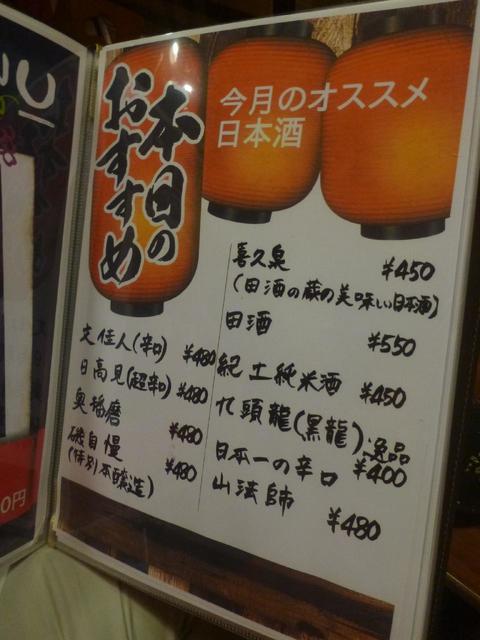 本日の
おすすめ
今月のオススメ
日本酒
喜久泉 ¥450
(田酒の蔵の美味しい日本酒)
田酒 ¥550
紀土純米酒 ¥450
九頭龍(黒龍)逸品 ¥400
日本一の辛口
山法師 ¥480
文佳人(辛口) ¥480
日高見(超辛口) ¥480
奥播磨 ¥480
磯自慢
(特別本醸造) ¥480
0円